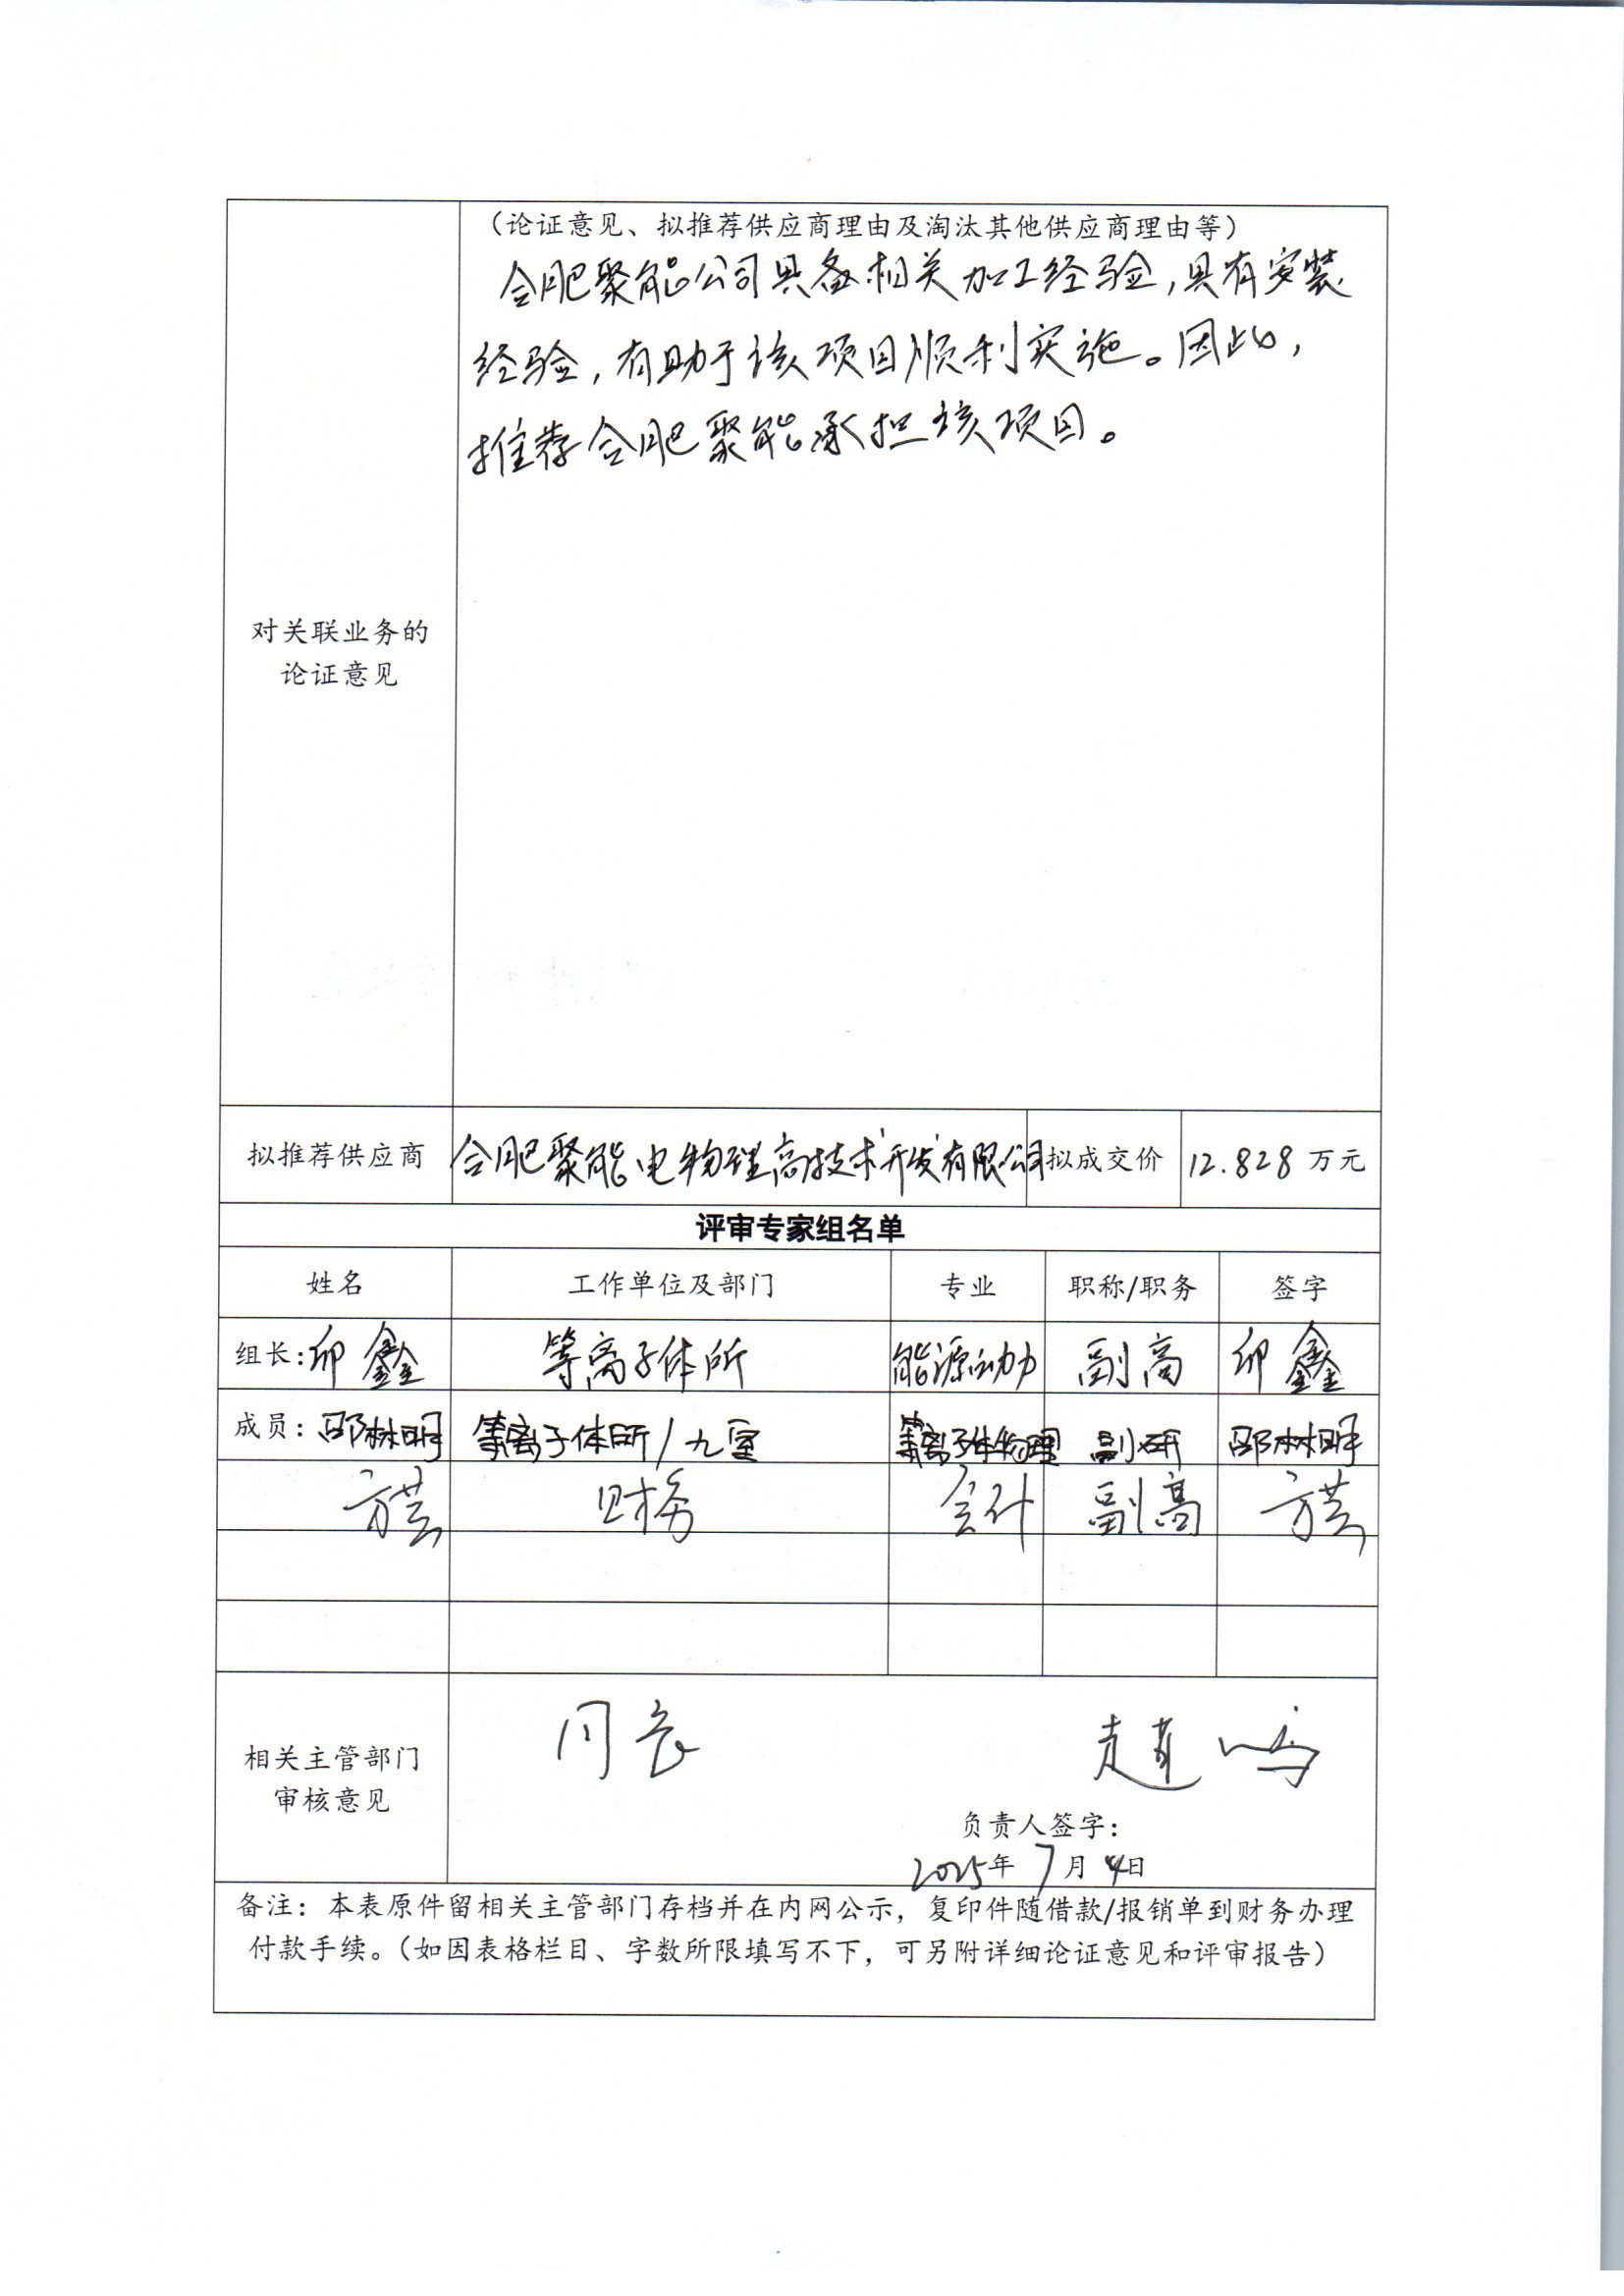 （论证意见、拟推荐供应商理由及淘汰其他供应商理由等）
合肥聚能公司具备相关加工经验，具有安装
经验，有助于该项目顺利实施。因此，
推荐合肥聚能承担该项目。
对关联业务的
论证意见
拟推荐供应商 合肥聚能电物理高技术开发有限公司 拟成交价 12.828 万元
评审专家组名单
姓名 工作单位及部门 专业 职称/职务 签字
组长：印鑫 等离子体所 能源动力 副高 印鑫
成员：邵林明 等离子体所/九室 等离子体物理 副研 邵林明
方芸 财务 会计 副高 方芸
相关主管部门
审核意见
同意
负责人签字：
2025年7月4日
备注：本表原件留相关主管部门存档并在内网公示，复印件随借款/报销单到财务办理
付款手续。（如因表格栏目、字数所限填写不下，可另附详细论证意见和评审报告）